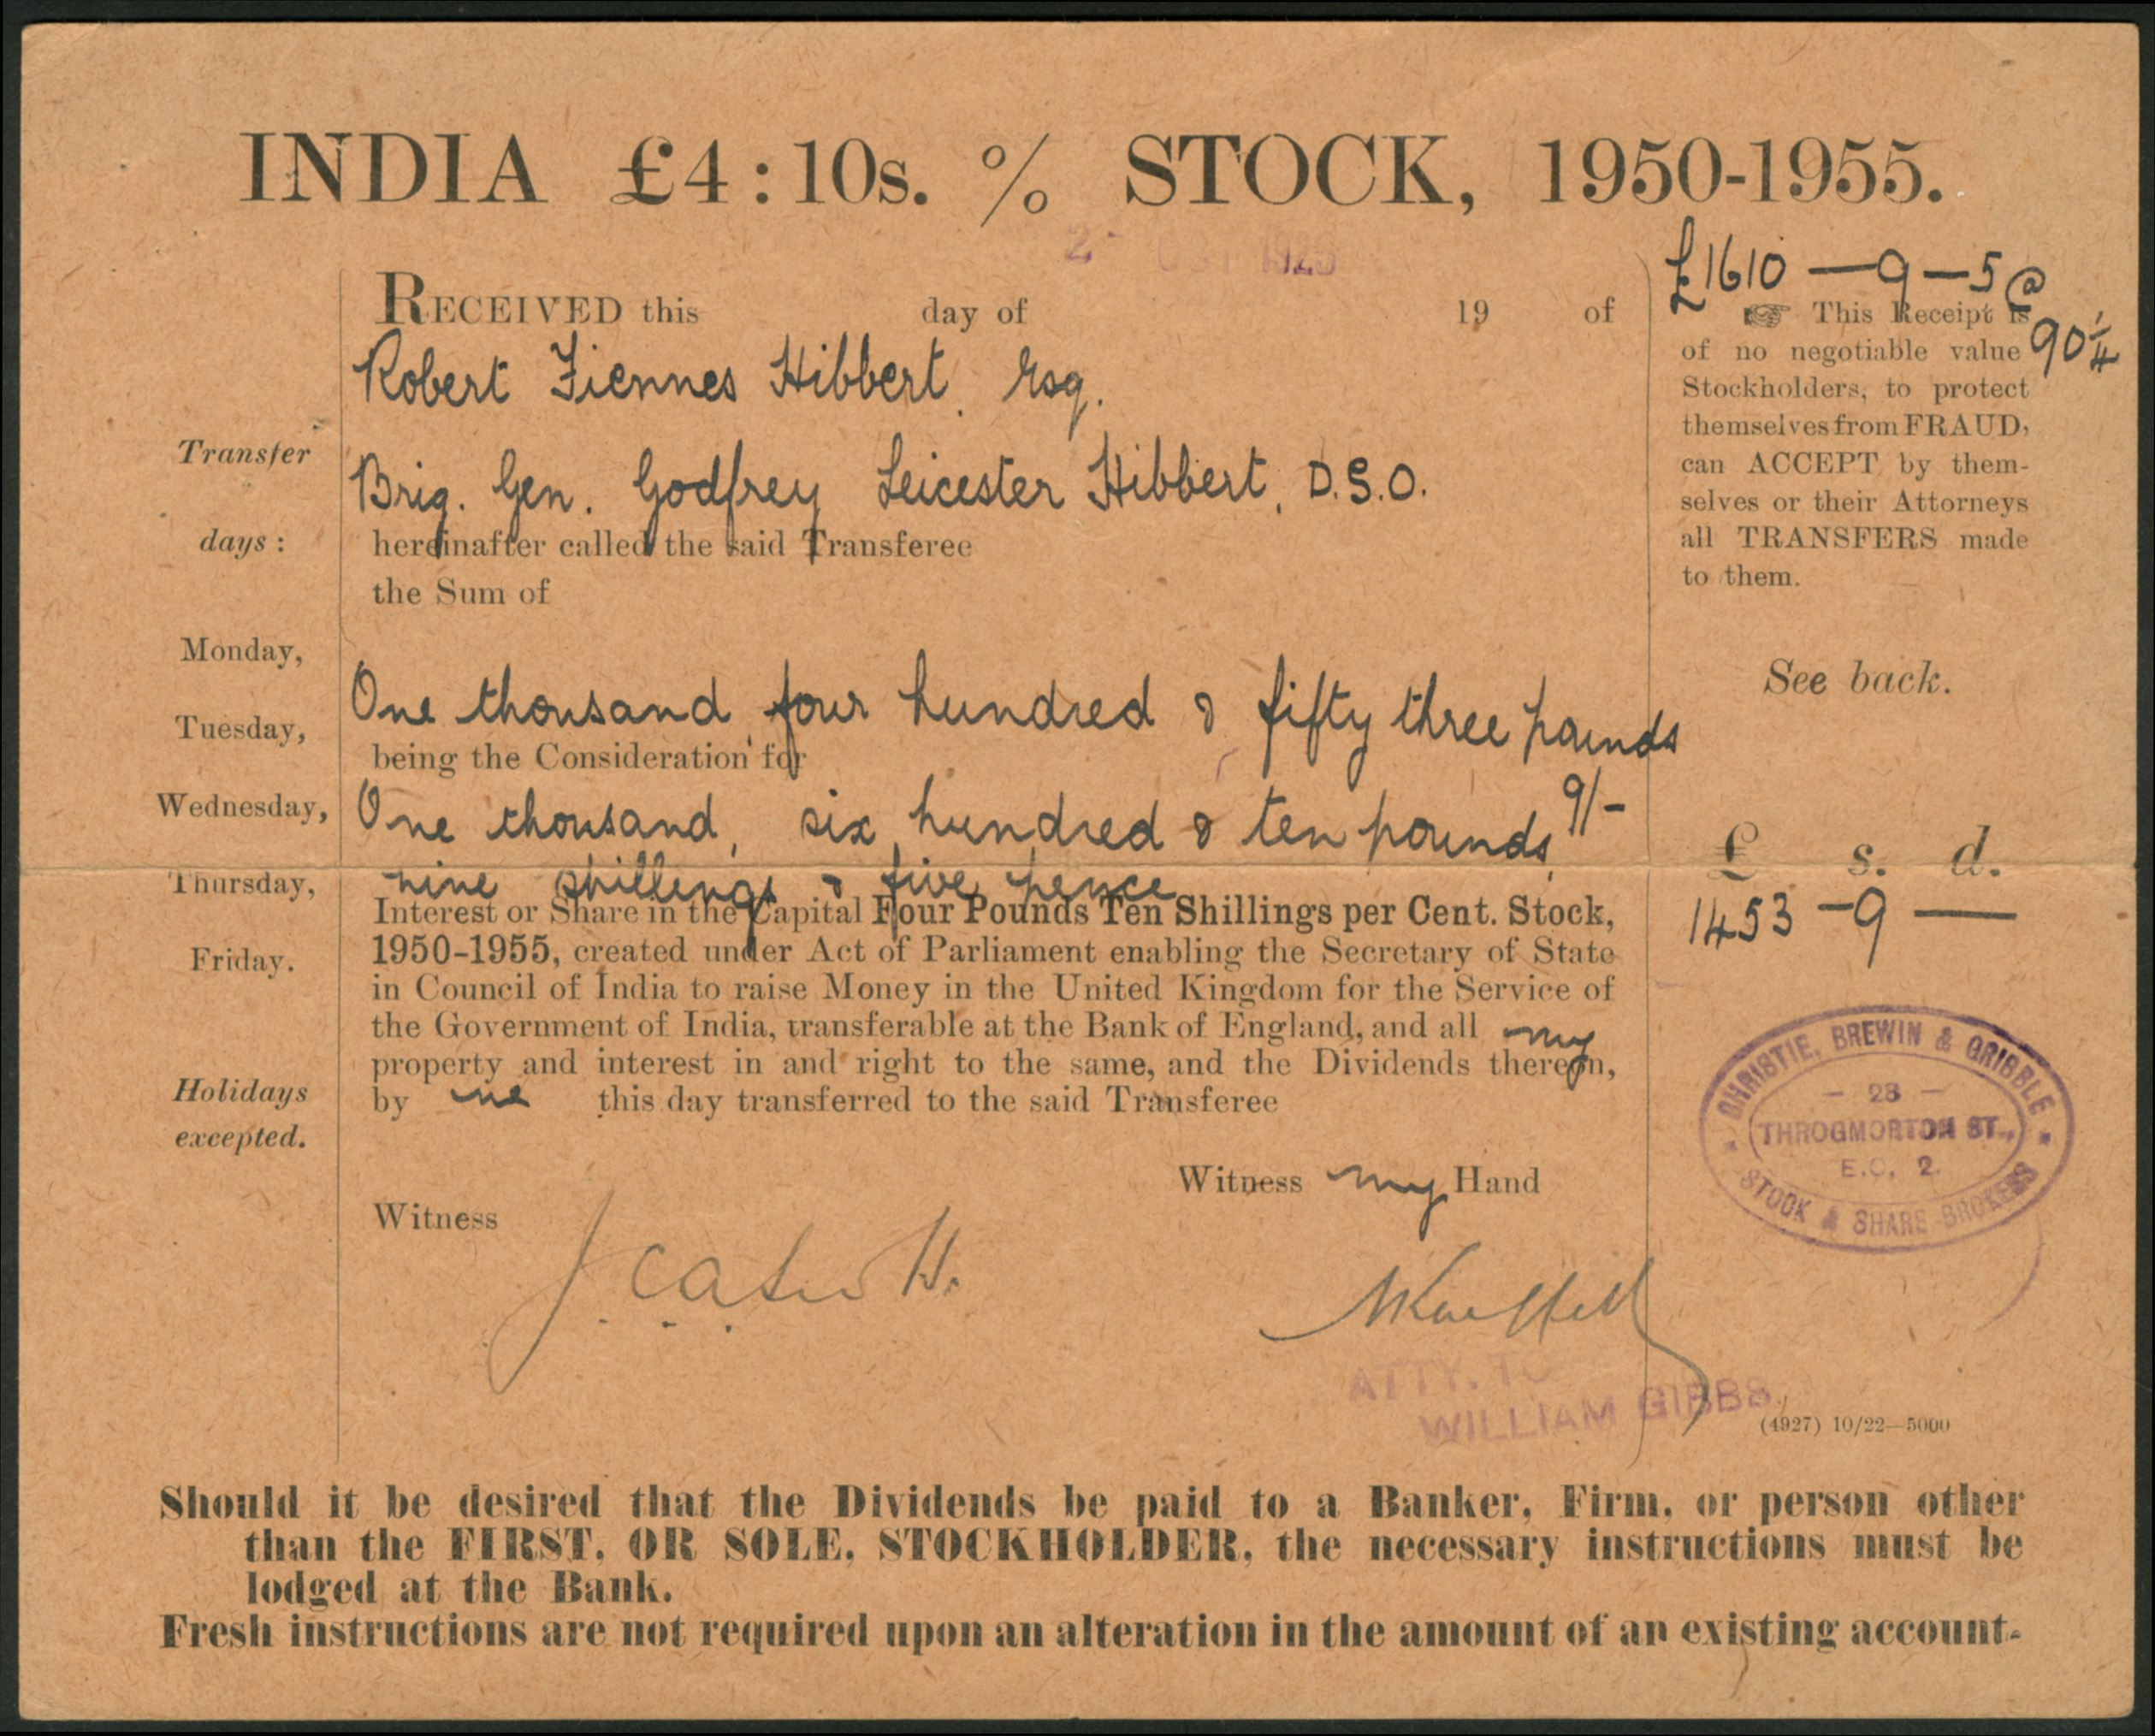 INDIA £4:10s. % STOCK, 1950-1955.
2 - OCT 1925
£1610 — 9 — 5 @
90 1/4
RECEIVED this day of 19 of
Robert Fiennes Hibbert. Esq.
Brig. Gen. Godfrey Leicester Hibbert, D.S.O.
hereinafter called the said Transferee
the Sum of
One thousand, four hundred & fifty three pounds
9/-
being the Consideration for
One thousand, six hundred & ten pounds,
nine shillings & five pence
Interest or Share in the Capital Four Pounds Ten Shillings per Cent. Stock,
1950-1955, created under Act of Parliament enabling the Secretary of State
in Council of India to raise Money in the United Kingdom for the Service of
the Government of India, transferable at the Bank of England, and all my
property and interest in and right to the same, and the Dividends thereon,
by me this day transferred to the said Transferee
Witness my Hand
Witness
ATTY. TO
WILLIAM GIBBS.
Transfer
days :
Monday,
Tuesday,
Wednesday,
Thursday,
Friday.
Holidays
excepted.
☞ This Receipt is
of no negotiable value
Stockholders, to protect
themselves from FRAUD,
can ACCEPT by them-
selves or their Attorneys
all TRANSFERS made
to them.
See back.
£ s. d.
1453 — 9 —
CHRISTIE, BREWIN & GRIBBLE
— 23 —
THROGMORTON ST.,
E.C. 2.
STOCK & SHARE BROKERS
(4927) 10/22—5000
Should it be desired that the Dividends be paid to a Banker, Firm, or person other
than the FIRST, OR SOLE, STOCKHOLDER, the necessary instructions must be
lodged at the Bank.
Fresh instructions are not required upon an alteration in the amount of an existing account.